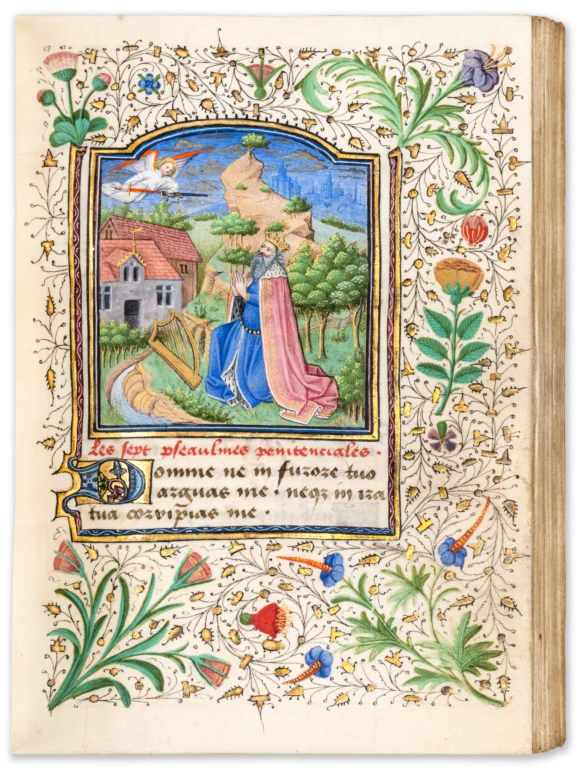 Les sept pseaulmes penitenciales .
Domine ne in furore tuo
arguas me . neqz in ira
tua corripias me .